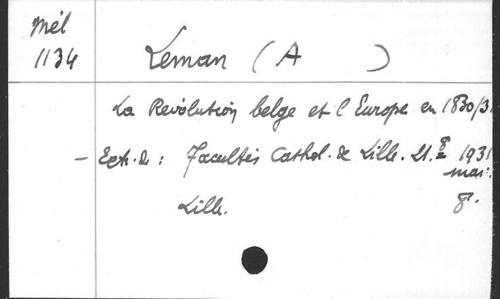 Mél
1134
Leman (A )
La Révolution belge et l'Europe en 1830/31
- Extr. de : Facultés Cathol. de Lille. 21. 8= 1931
mai:
Lille. 8°.